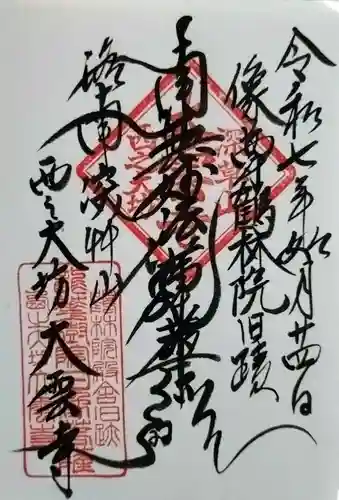 令和七年如月廿四日
像尊鶴林院旧蹟
南無妙法蓮華経
洛南深艸山
西之大坊大雲寺